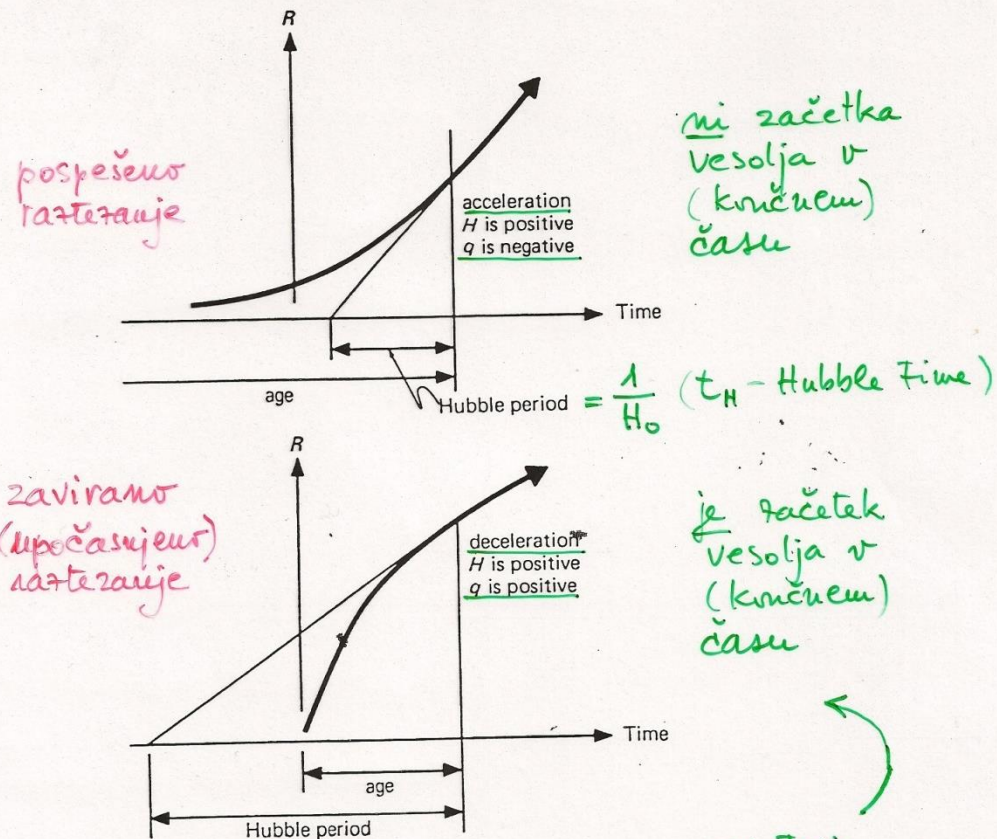 R
pospešeno
raztezanje
acceleration
H is positive
q is negative
ni začetka
vesolja v
(končnem)
času
Time
age
Hubble period = 1/H₀ (t_H - Hubble Time)
R
zavirano
(upočasnjeno)
raztezanje
deceleration
H is positive
q is positive
je začetek
vesolja v
(končnem)
času
Time
age
Hubble period